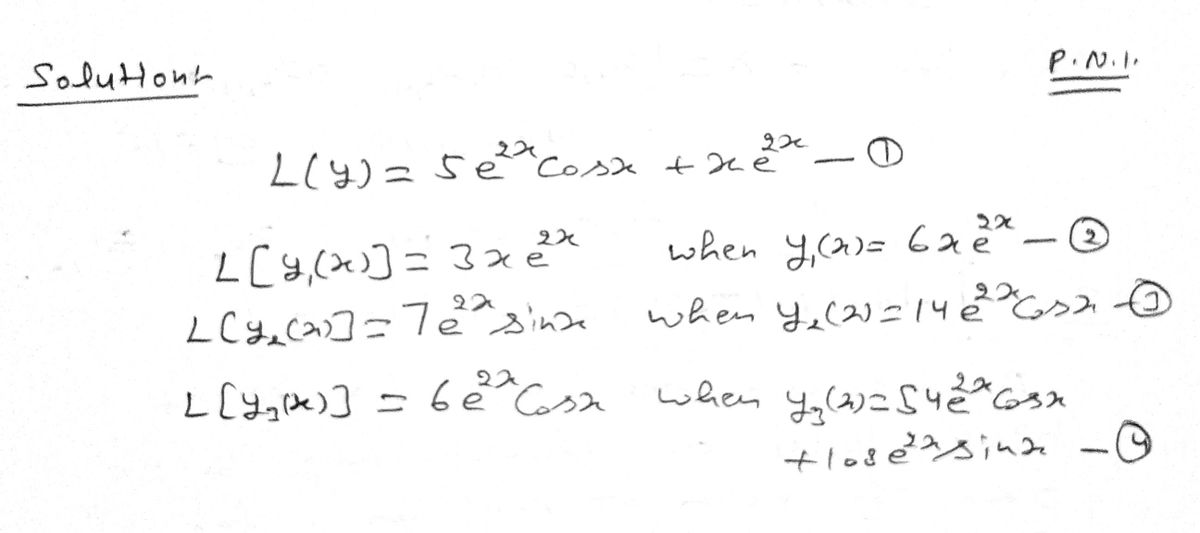 Solution:-
P.N.1.
L(y) = 5e^{2x} Cosx + xe^{2x} — ①
L[y₁(x)] = 3xe^{2x} when y₁(x) = 6xe^{2x} — ②
L[y₂(x)] = 7e^{2x} sinx when y₂(x) = 14e^{2x} Cosx — ③
L[y₃(x)] = 6e^{2x} Cosx when y₃(x) = 54e^{2x} Cosx
+ 108e^{2x} sinx — ④